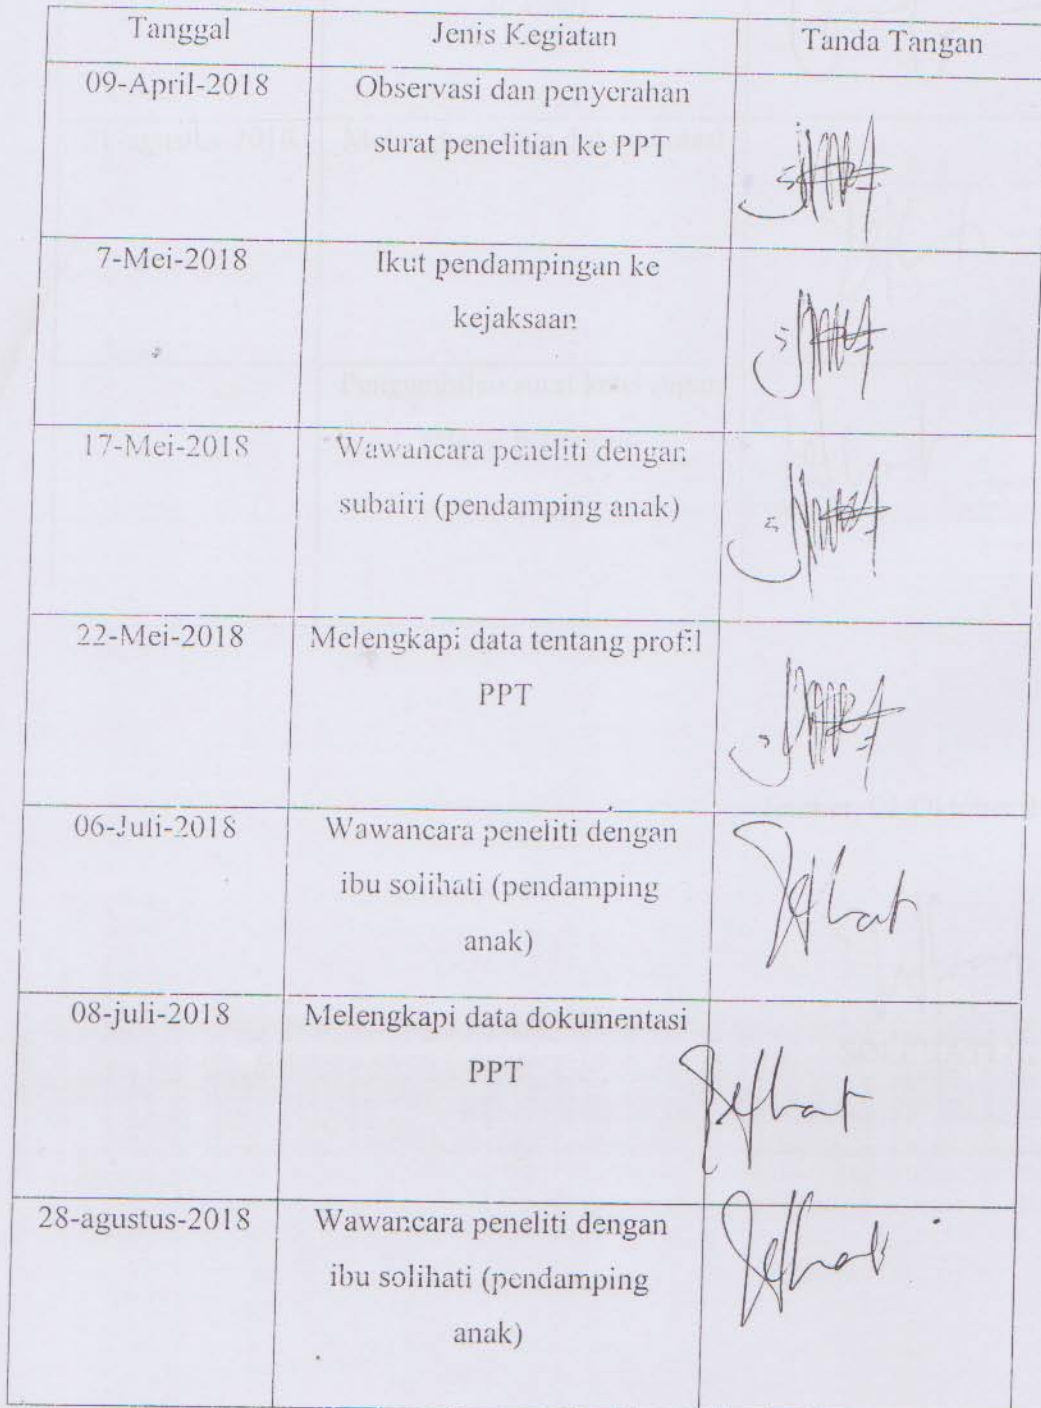 Tanggal Jenis Kegiatan Tanda Tangan
09-April-2018 Observasi dan penyerahan
surat penelitian ke PPT
7-Mei-2018 Ikut pendampingan ke
kejaksaan
17-Mei-2018 Wawancara peneliti dengan
subairi (pendamping anak)
22-Mei-2018 Melengkapi data tentang profil
PPT
06-Juli-2018 Wawancara peneliti dengan
ibu solihati (pendamping
anak)
08-juli-2018 Melengkapi data dokumentasi
PPT
28-agustus-2018 Wawancara peneliti dengan
ibu solihati (pendamping
anak)